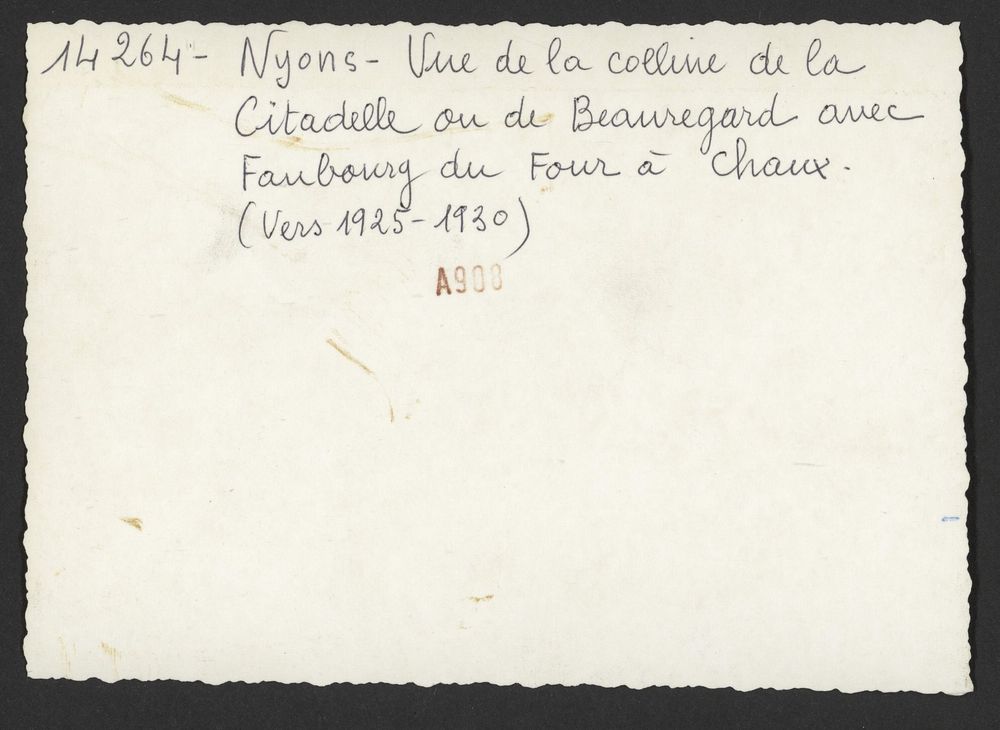 14 264 - Nyons - Vue de la colline de la
Citadelle ou de Beauregard avec
Faubourg du Four à Chaux.
(Vers 1925-1930)
A908